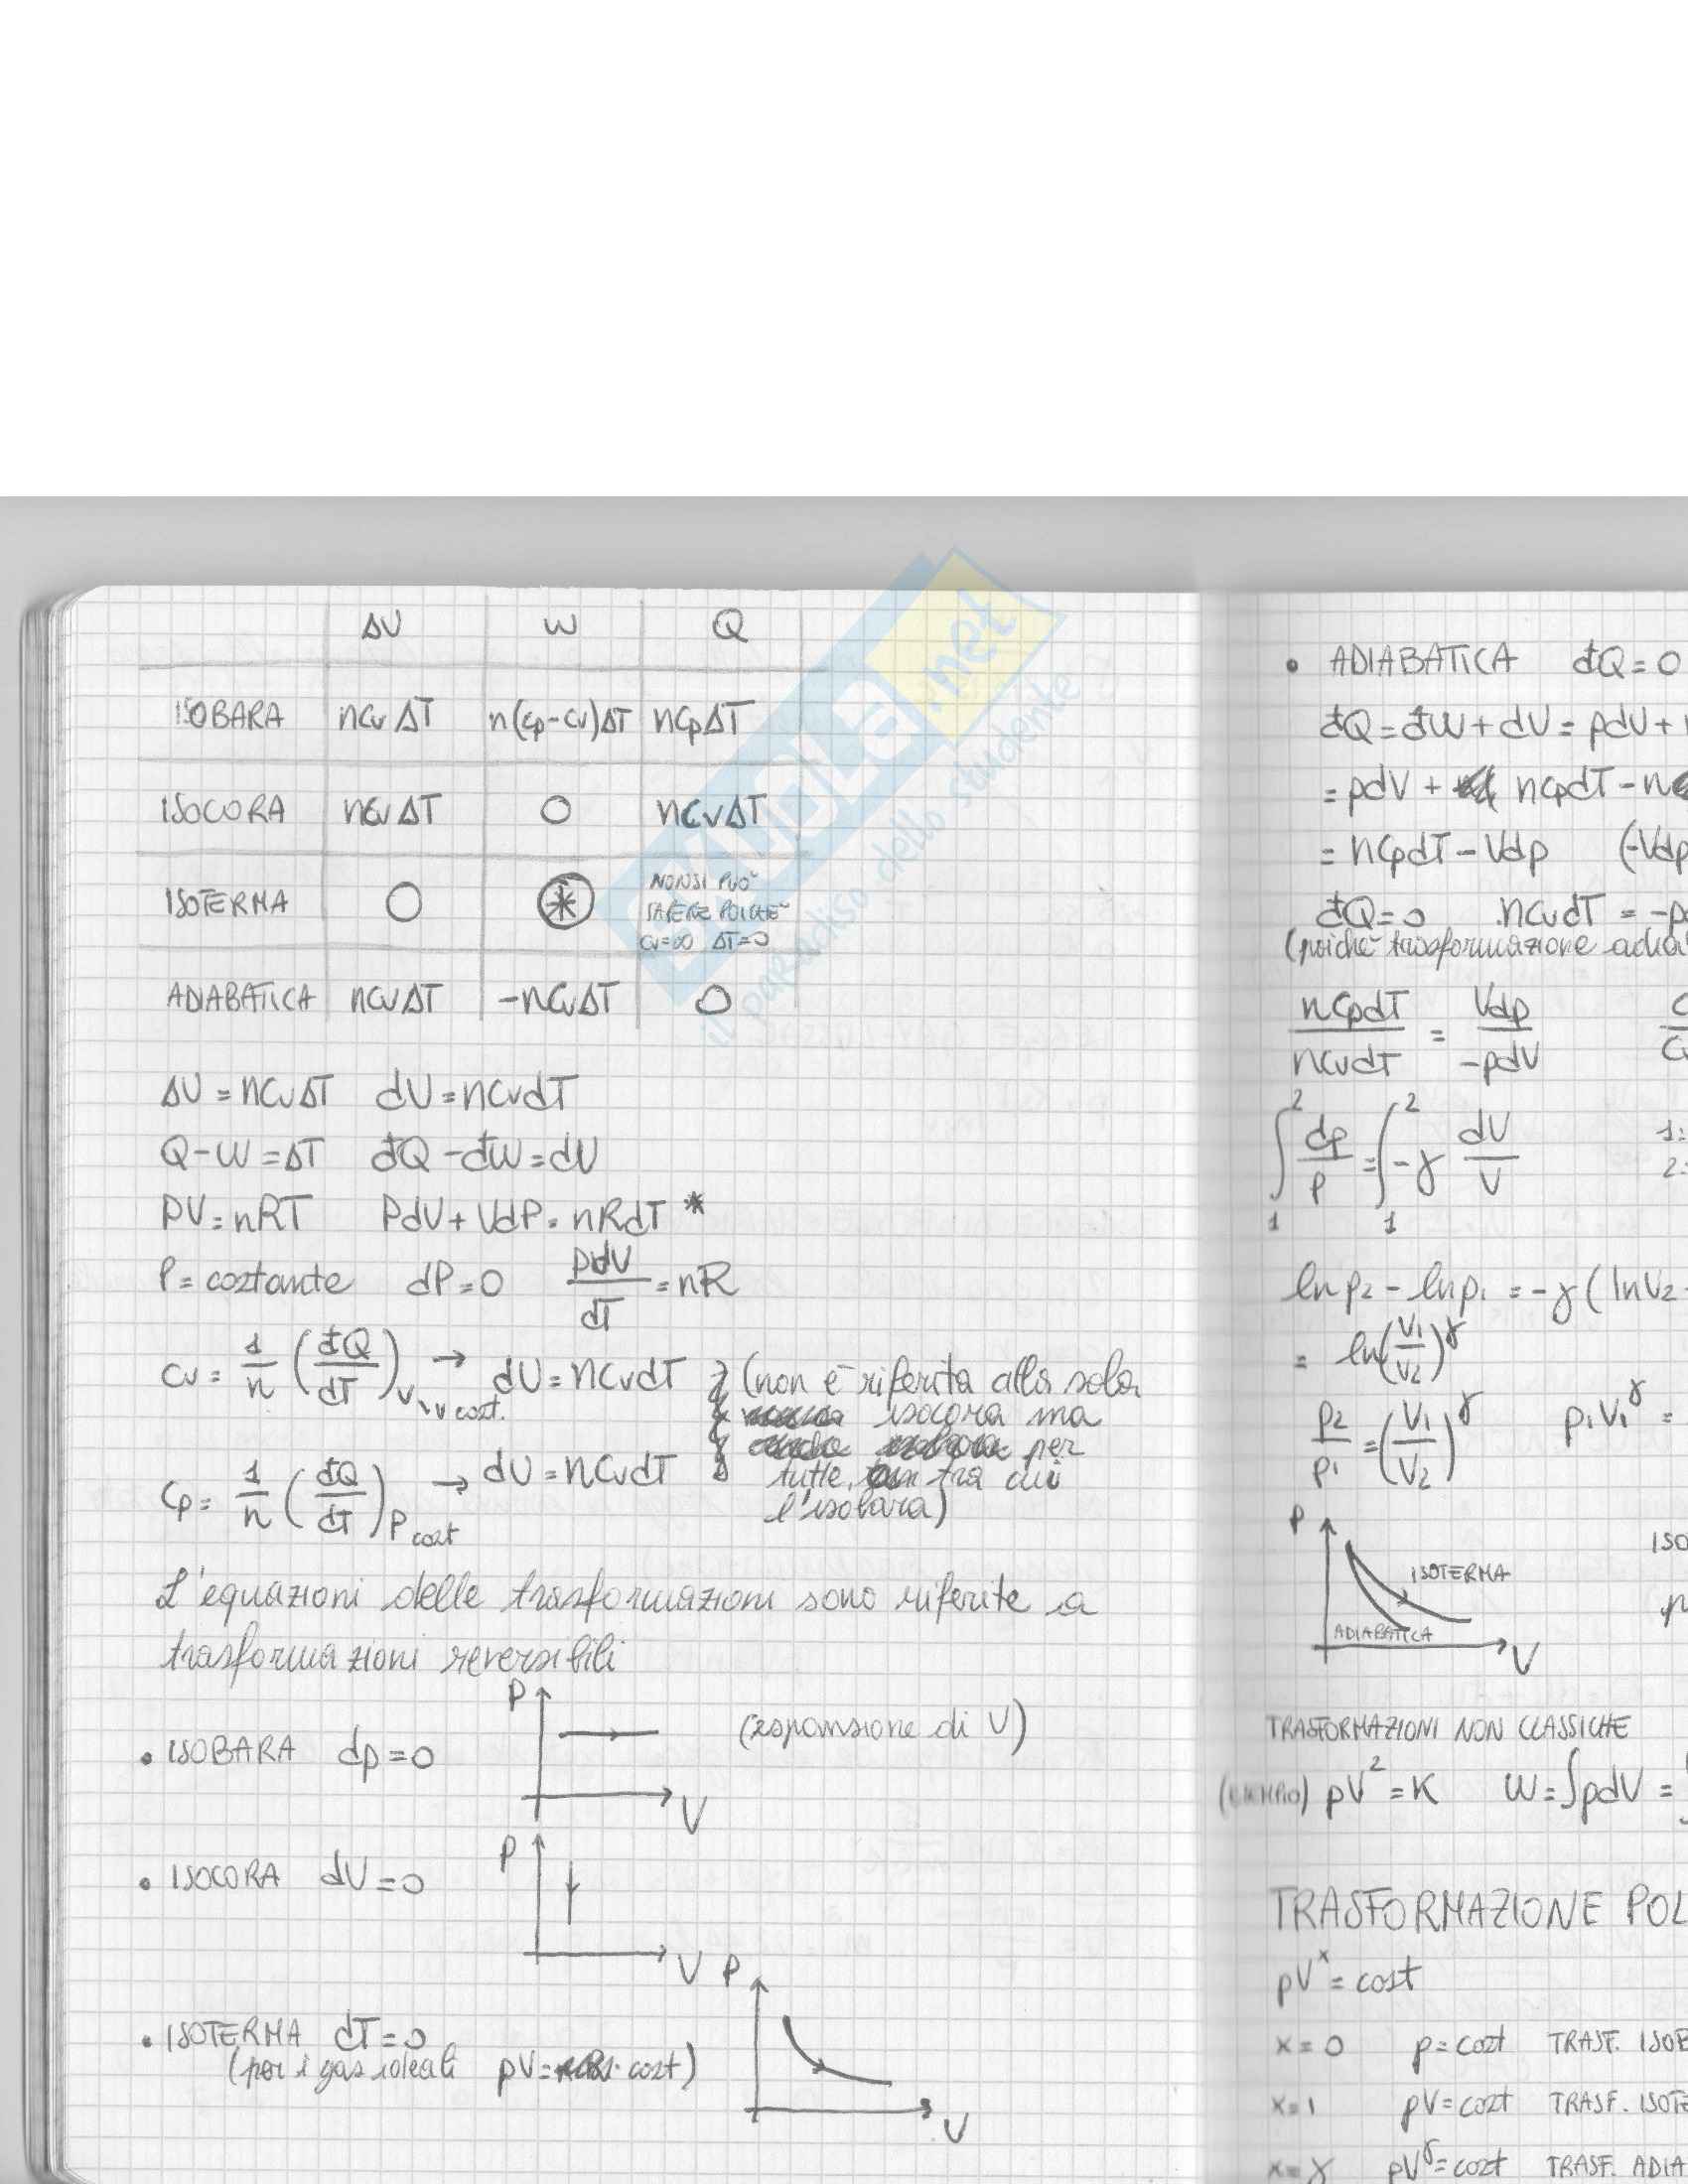 ΔU W Q
ISOBARA nCvΔT n(Cp-Cv)ΔT nCpΔT
ISOCORA nCvΔT O nCvΔT
ISOTERMA O ⊛ NON SI PUO' SAPERE POICHE' Cv=∞ ΔT=0
ADIABATICA nCvΔT -nCvΔT O
ΔU = nCvΔT dU = nCvdT
Q-W = ΔT đQ-đW = dU
PV = nRT PdV + VdP = nRdT *
P = costante dP = 0 PdV/dT = nR
Cv = 1/n (đQ/dT)V V cost. → dU = nCvdT (non è riferita alla sola
isocora ma
per
Cp = 1/n (đQ/dT)P cost → dU = nCvdT tutte, tra cui
l'isobara)
L'equazioni delle trasformazioni sono riferite a
trasformazioni reversibili
• ISOBARA dp = 0 P V (espansione di V)
• ISOCORA dV = 0 P V
• ISOTERMA dT = 0 P V
(per i gas ideali pV = cost)
• ADIABATICA đQ = 0
đQ = đW + dU = pdV +
= pdV + nCpdT - n
= nCpdT - Vdp (-Vdp
đQ = 0 nCvdT = -p
(poichè trasformazione adia
nCpdT/nCvdT = Vdp/-pdV C/Cv
∫₁² dp/p = ∫₁² -γ dV/V 1:
2:
ln p2 - ln p1 = -γ (ln V2 -
= ln(V1/V2)^γ
p2/p1 = (V1/V2)^γ p1V1^γ =
P ISOTERMA ADIABATICA V ISO
p
TRASFORMAZIONI NON CLASSICHE
(ESEMPIO) pV² = K W = ∫pdV =
TRASFORMAZIONE POL
pV^x = cost
x = 0 p = cost TRASF. ISOB
x = 1 pV = cost TRASF. ISOTE
x = γ pV^γ = cost TRASF. ADIA
SKUOLA.net
il paradiso dello studente